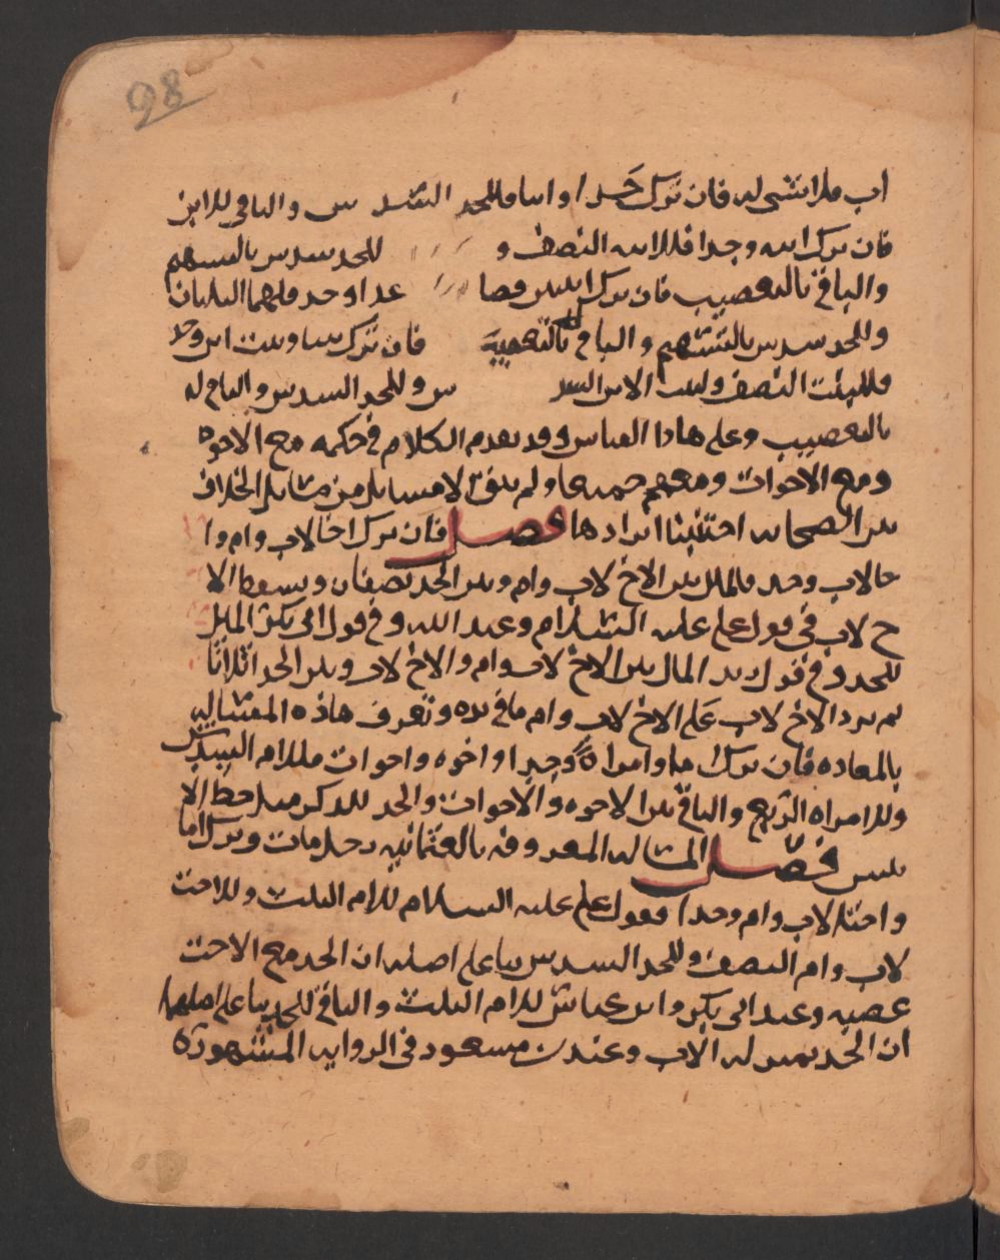 98
اب فلا شى له فان ترك جدا او ابنا فللجد السدس والباقي للابن
فان ترك ابنه وجدا فللابنه النصف و للجد سدس بالسهم
والباقي بالتعصيب فان ترك ابنتين فصاعدا وجد فلهما الثلثان
وللجد سدس بالسهم والباقي بالتعصيب فان ترك بنتا وبنت ابن وجد
فللبنت النصف ولبنت الابن السدس وللجد السدس والباقي له
بالتعصيب وعلى هاذا القياس وقد تقدم الكلام في حكمه مع الاخوه
ومع الاخوات ومعهم جميعا ولم يبق الا مسايل من مسايل الخلاف
بين الصحابه احببنا ايرادها فصل فان ترك اخا لاب وام وا
خا لاب وجد فالمال بين الاخ لاب وام وبين الجد نصفان ويسقط الا
خ لاب في قول علي عليه السلام وعبد الله وفي قول ابي بكر المال
للجد وفي قول زيد المال بين الاخ لاب وام والاخ لاب وبين الجد اثلاثا
ثم يرد الاخ لاب على الاخ لاب وام ما في يده وتعرف هاذه المساله
بالمعاده فان ترك اما وامراة وجدا واخوه واخوات فللام السدس
وللامراه الربع والباقي بين الاخوه والاخوات والجد للذكر مثل حظ الا
نثيين فصل المساله المعروفه بالعثمانيه رجل مات وترك اما
واختا لاب وام وجدا فقول علي عليه السلام للام الثلث وللاخت
لاب وام النصف وللجد السدس بنا على اصله ان الجد مع الاخت
عصبه وعند ابي بكر وابن عباس للام الثلث والباقي للجد بنا على اصلهما
ان الجد بمنزله الاب وعند بن مسعود في الروايه المشهورة